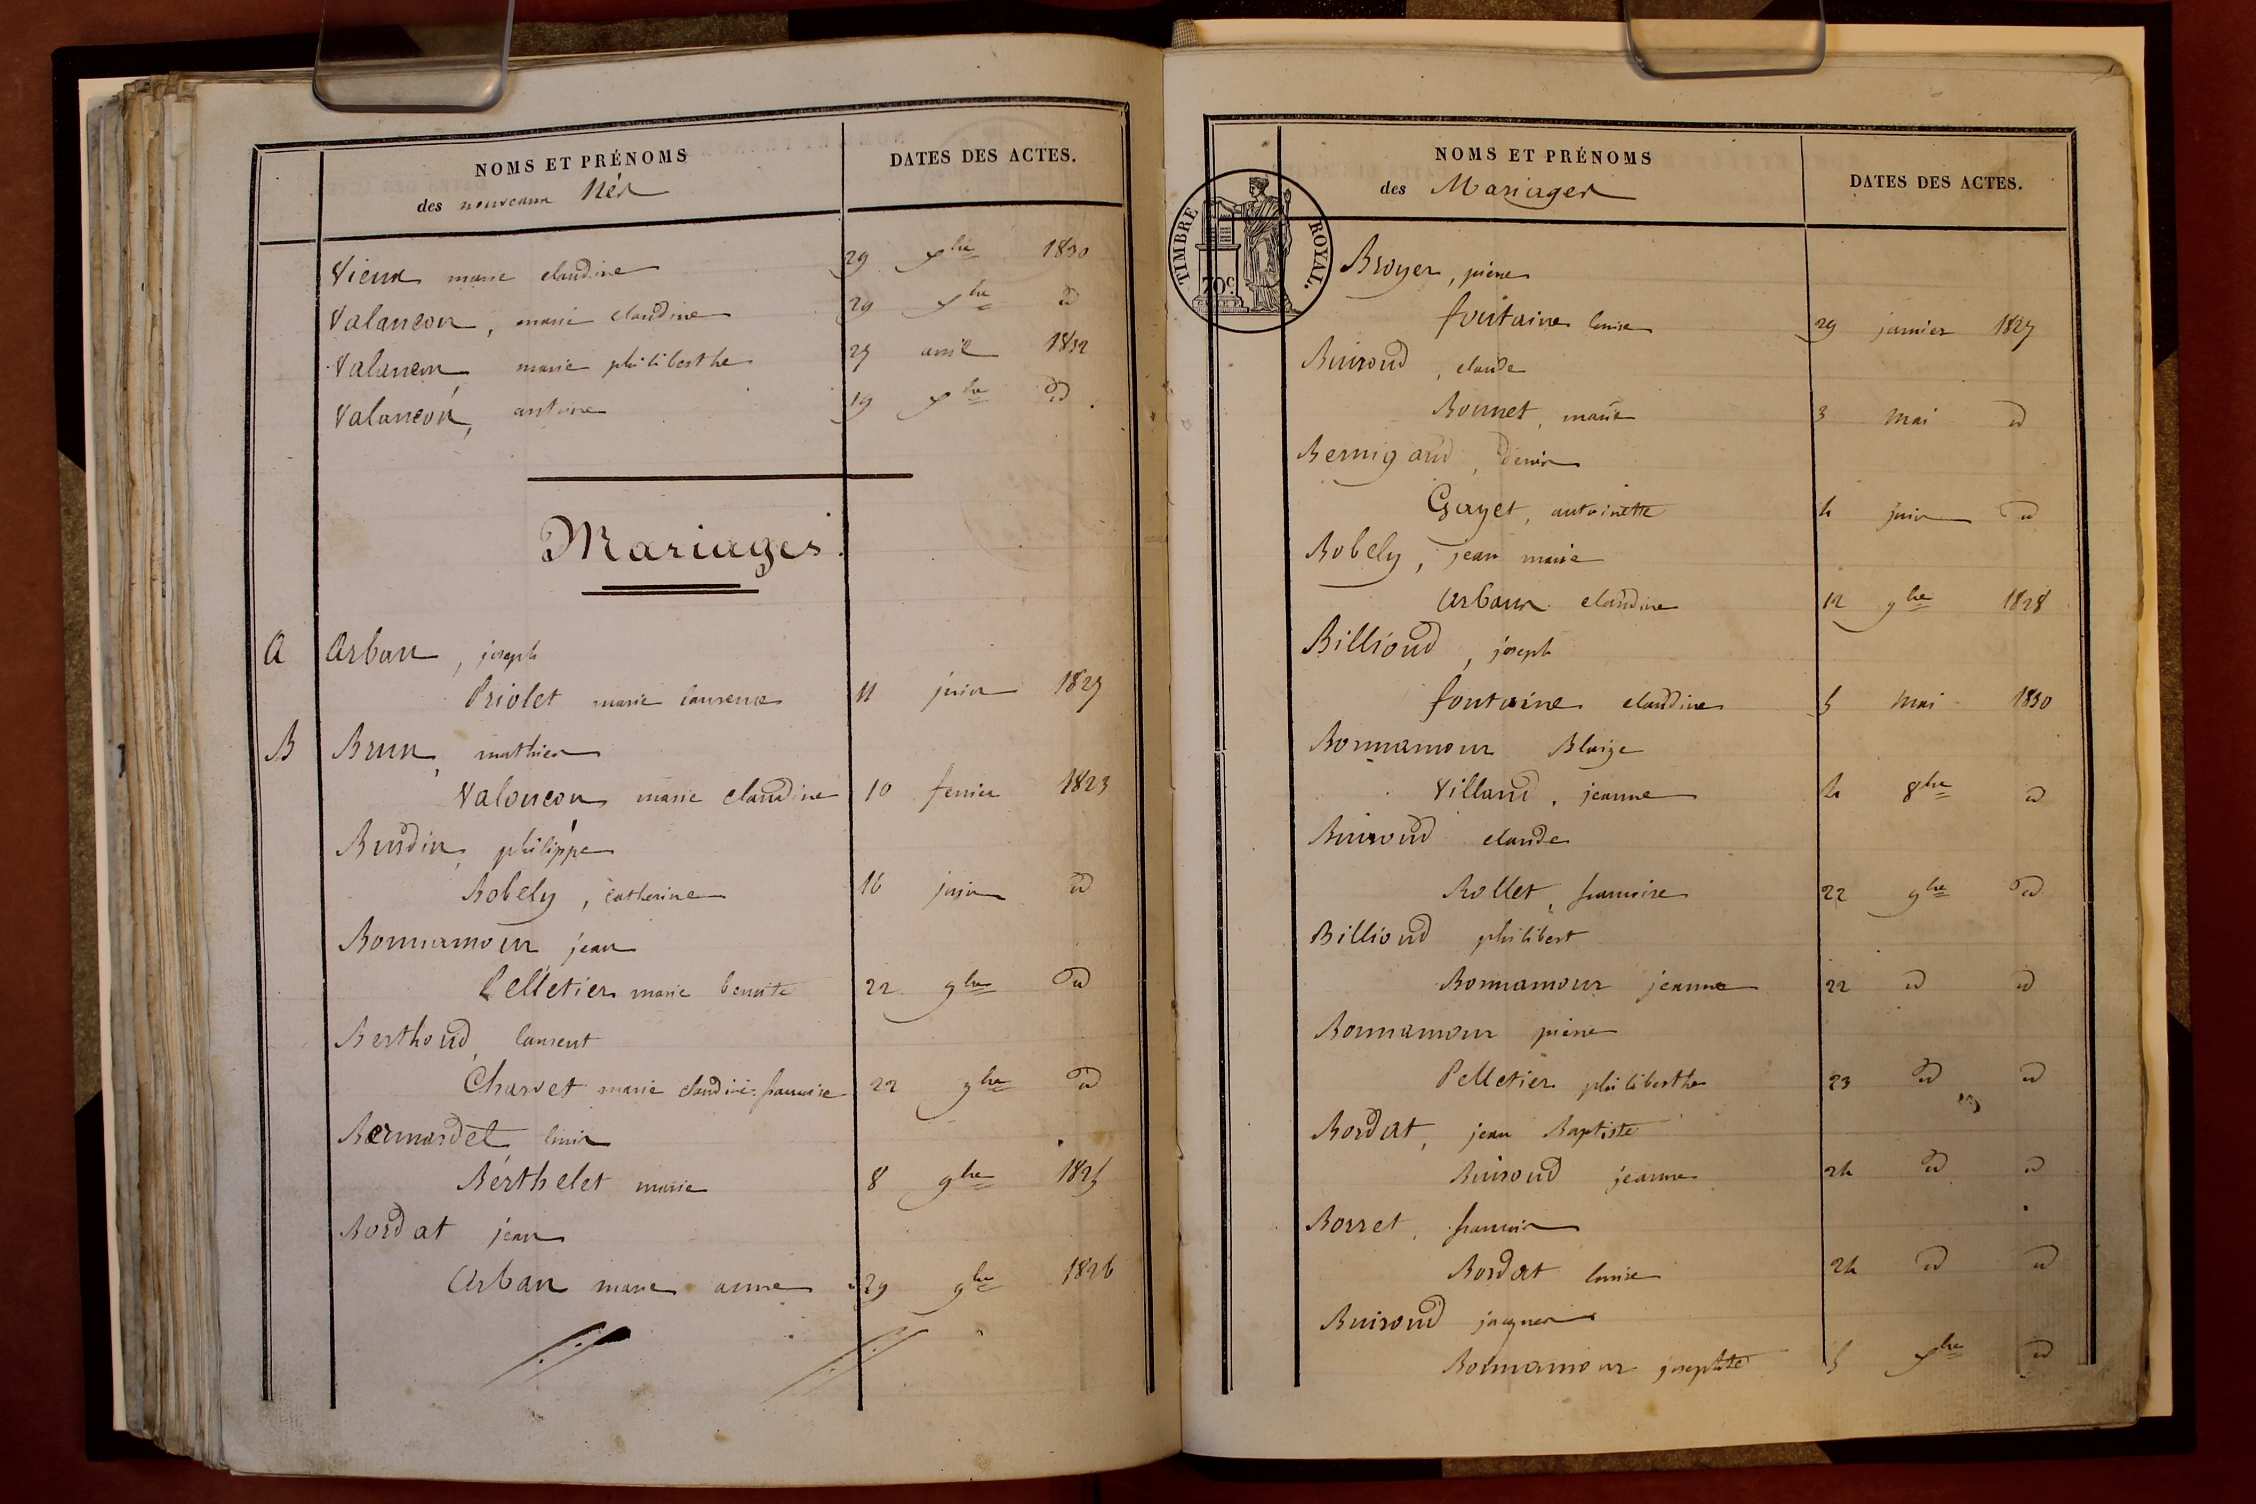 NOMS ET PRÉNOMS
des nouveaux Nés
DATES DES ACTES.
Vieux marie claudine 29 xbre 1830
Valancon, marie claudine 29 xbre d
Valancon marie philiberthe 27 avril 1832
Valancon, antoine 19 xbre d
Mariages.
A Arban, joseph
Priolet marie laurence 11 juin 1827
B Brun, mathieu
Valancon marie claudine 10 fevrier 1823
Burdin, philippe
Robely, catherine 16 juin d
Bonnamour jean
Pelletier marie benoite 22 9bre d
Berthoud, laurent
Charvet marie claudine francoise 22 9bre d
Bernardet louis
Berthelet marie 8 9bre 1825
Bordat jean
Arban marie anne 29 9bre 1826
NOMS ET PRÉNOMS
des Mariages
DATES DES ACTES.
TIMBRE ROYAL.
70c
Broyer, pierre
fontaine louise 29 janvier 1827
Buiroud, claude
Bonnet, marie 3 mai d
Bernigaud, denis
Gayet, antoinette 4 juin d
Robely, jean marie
Arban claudine 12 9bre 1828
Billioud, joseph
fontaine claudine 5 mai 1830
Bonnamour Blaize
Villard, jeanne 8bre d
Buiroud claude
Rollet, francoise 22 9bre d
Billioud philibert
Bonnamour jeanne 22 d d
Bonnamour pierre
Pelletier philiberthe 23 d d
Bordat, jean Baptiste
Buiroud jeanne 24 d d
Borret, francois
Bordat louise 24 d d
Buiroud jacques
Bonnamour josephte 5 xbre d